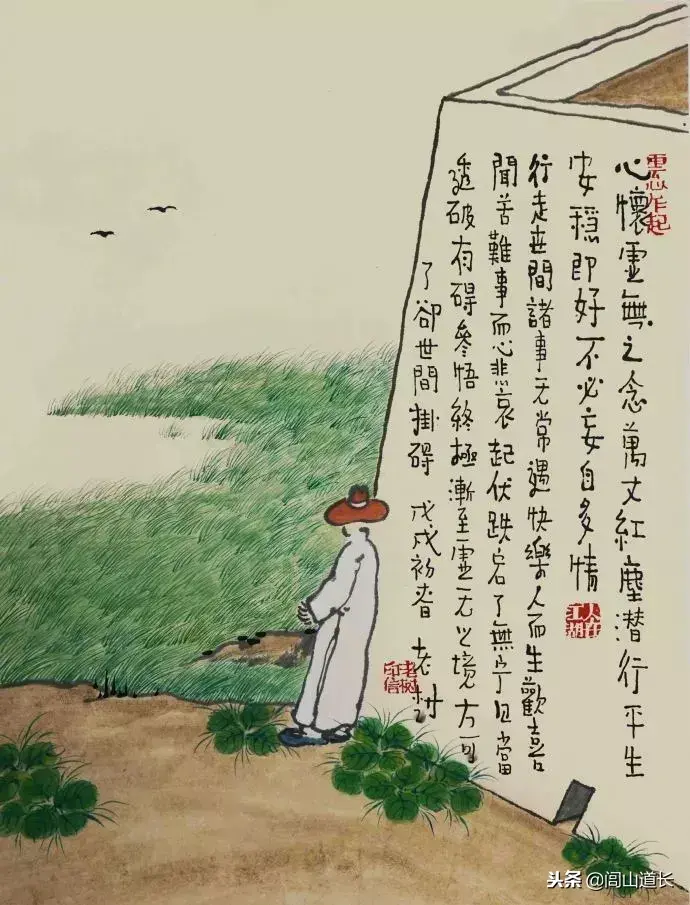 心懷虛無之念萬丈紅塵潜行平生
安穩即好不必妄自多情
行走世間諸事无常遇快樂人而生歡喜
聞苦難事而心悲哀起伏跌宕了無宁日當
透破有碍參悟終極漸至虛无之境方可
了卻世間掛碍 戊戌初春 老树
人在江湖
头条 @闾山道长